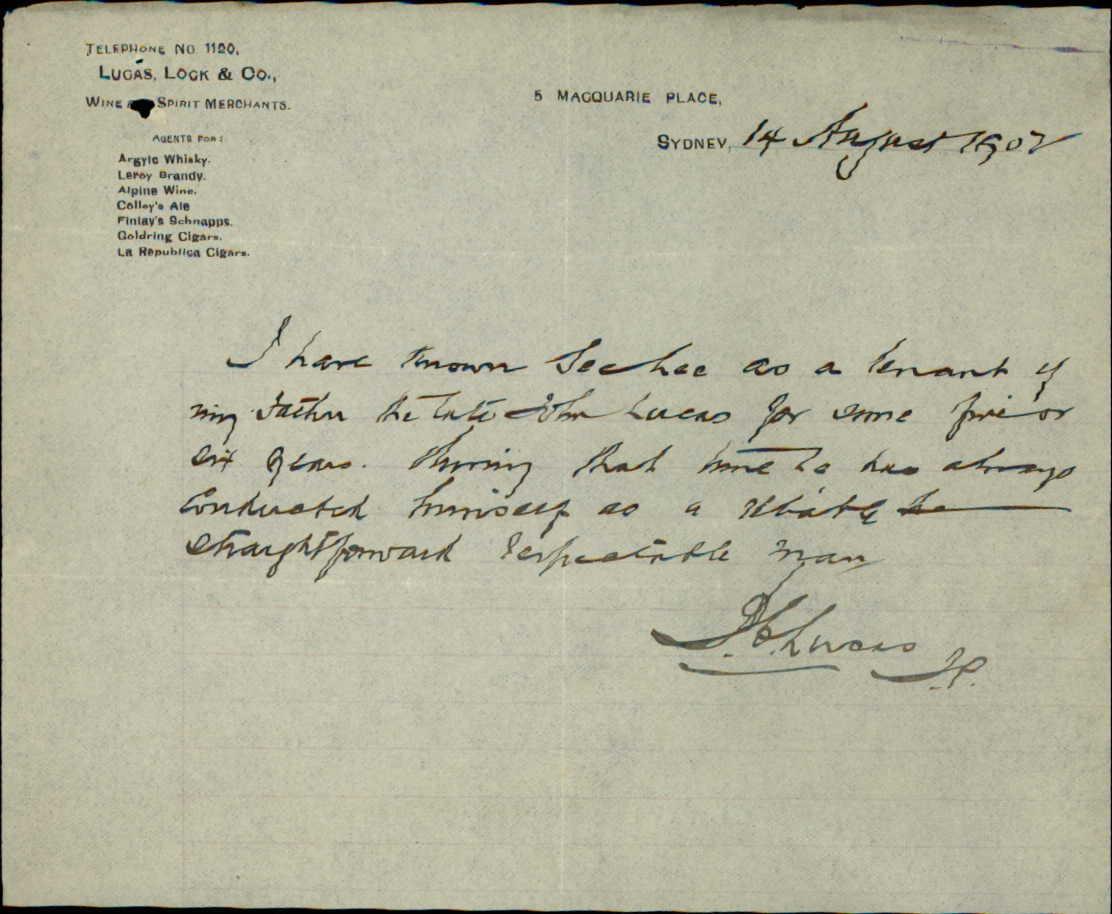 TELEPHONE NO 1120,
LUCAS, LOCK & CO.,
WINE SPIRIT MERCHANTS.
AGENTS FOR:
Argyle Whisky.
Leroy Brandy.
Alpine Wine.
Colley's Ale
Finlay's Schnapps.
Goldring Cigars.
La Republica Cigars.
5 MACQUARIE PLACE,
SYDNEY, 14 August 1902
I have known See hee as a tenant of
my Father the late John Lucas for some five or
six years. During that time he has always
Conducted himself as a
straightforward respectable man
Lucas
J.P.